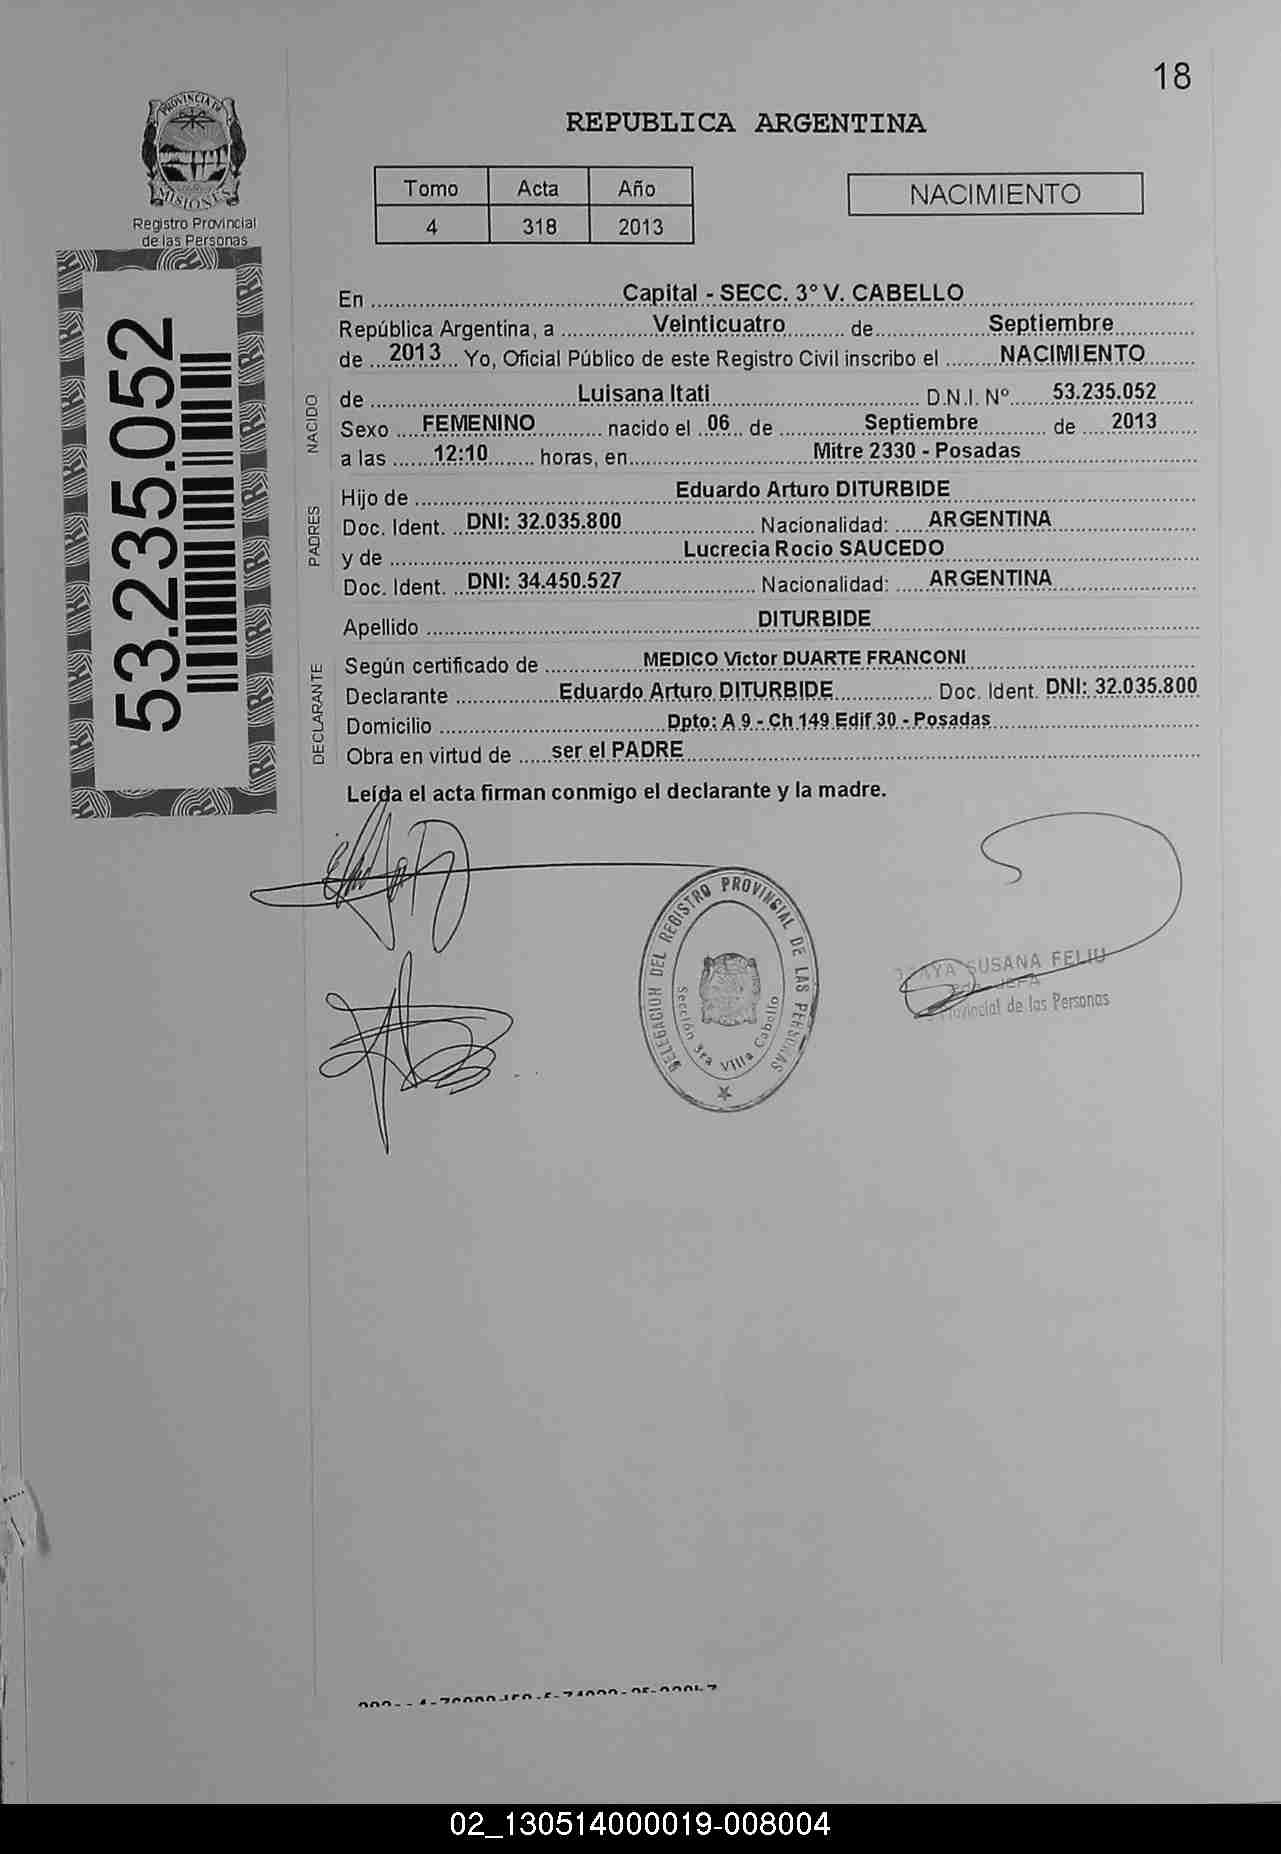 18
PROVINCIA DE
MISIONES
Registro Provincial
de las Personas
REPUBLICA ARGENTINA
Tomo Acta Año
4 318 2013
NACIMIENTO
53.235.052
En Capital - SECC. 3° V. CABELLO
República Argentina, a Veinticuatro de Septiembre
de 2013 Yo, Oficial Público de este Registro Civil inscribo el NACIMIENTO
NACIDO
de Luisana Itati D.N.I. Nº 53.235.052
Sexo FEMENINO nacido el 06 de Septiembre de 2013
a las 12:10 horas, en Mitre 2330 - Posadas
PADRES
Hijo de Eduardo Arturo DITURBIDE
Doc. Ident. DNI: 32.035.800 Nacionalidad: ARGENTINA
y de Lucrecia Rocio SAUCEDO
Doc. Ident. DNI: 34.450.527 Nacionalidad: ARGENTINA
Apellido DITURBIDE
DECLARANTE
Según certificado de MEDICO Victor DUARTE FRANCONI
Declarante Eduardo Arturo DITURBIDE Doc. Ident. DNI: 32.035.800
Domicilio Dpto: A 9 - Ch 149 Edif 30 - Posadas
Obra en virtud de ser el PADRE
Leída el acta firman conmigo el declarante y la madre.
DELEGACION DEL REGISTRO PROVINCIAL DE LAS PERSONAS
Sección 3ra Villa Cabello
SUSANA FELIU
JEFA
Provincial de las Personas
02_130514000019-008004